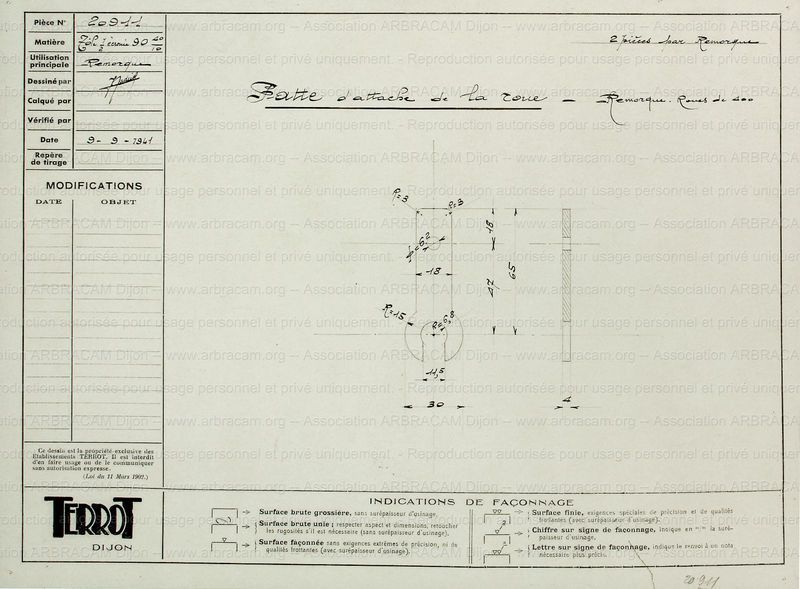 Pièce N° 20911
Matière Tôle 90
Utilisation principale Remorque
Dessiné par
Calqué par
Vérifié par
Date 9-9-1941
Repère de tirage
MODIFICATIONS
DATE OBJET
2 pièces par Remorque
Patte d'attache de la roue - Remorque. Roues de 400
R=3 R=3
18
65
47
18
R=15
R=6,8
11,5
30
4
Ce dessin est la propriété exclusive des
Etablissements TERROT. Il est interdit
d'en faire usage ou de le communiquer
sans autorisation expresse.
(Loi du 11 Mars 1902.)
TERROT
DIJON
INDICATIONS DE FAÇONNAGE
Surface brute grossière, sans surépaisseur d'usinage.
Surface brute unie; respecter aspect et dimensions, retoucher
les rugosités s'il est nécessaire (sans surépaisseur d'usinage).
Surface façonnée sans exigences extrêmes de précision, ni de
qualités frottantes (avec surépaisseur d'usinage).
Surface finie, exigences spéciales de précision et de qualités
frottantes (avec surépaisseur d'usinage).
Chiffre sur signe de façonnage, indique en m/m la surépaisseur d'usinage.
Lettre sur signe de façonnage, indique le renvoi à un nota
nécessaire plus précis.
20911
www.arbracam.org -- Association ARBRACAM Dijon -- www.arbracam.org -- Association ARBRACAM Dijon
Reproduction autorisée pour usage personnel et privé uniquement. - Reproduction autorisée pour usage personnel et privé uniquement.